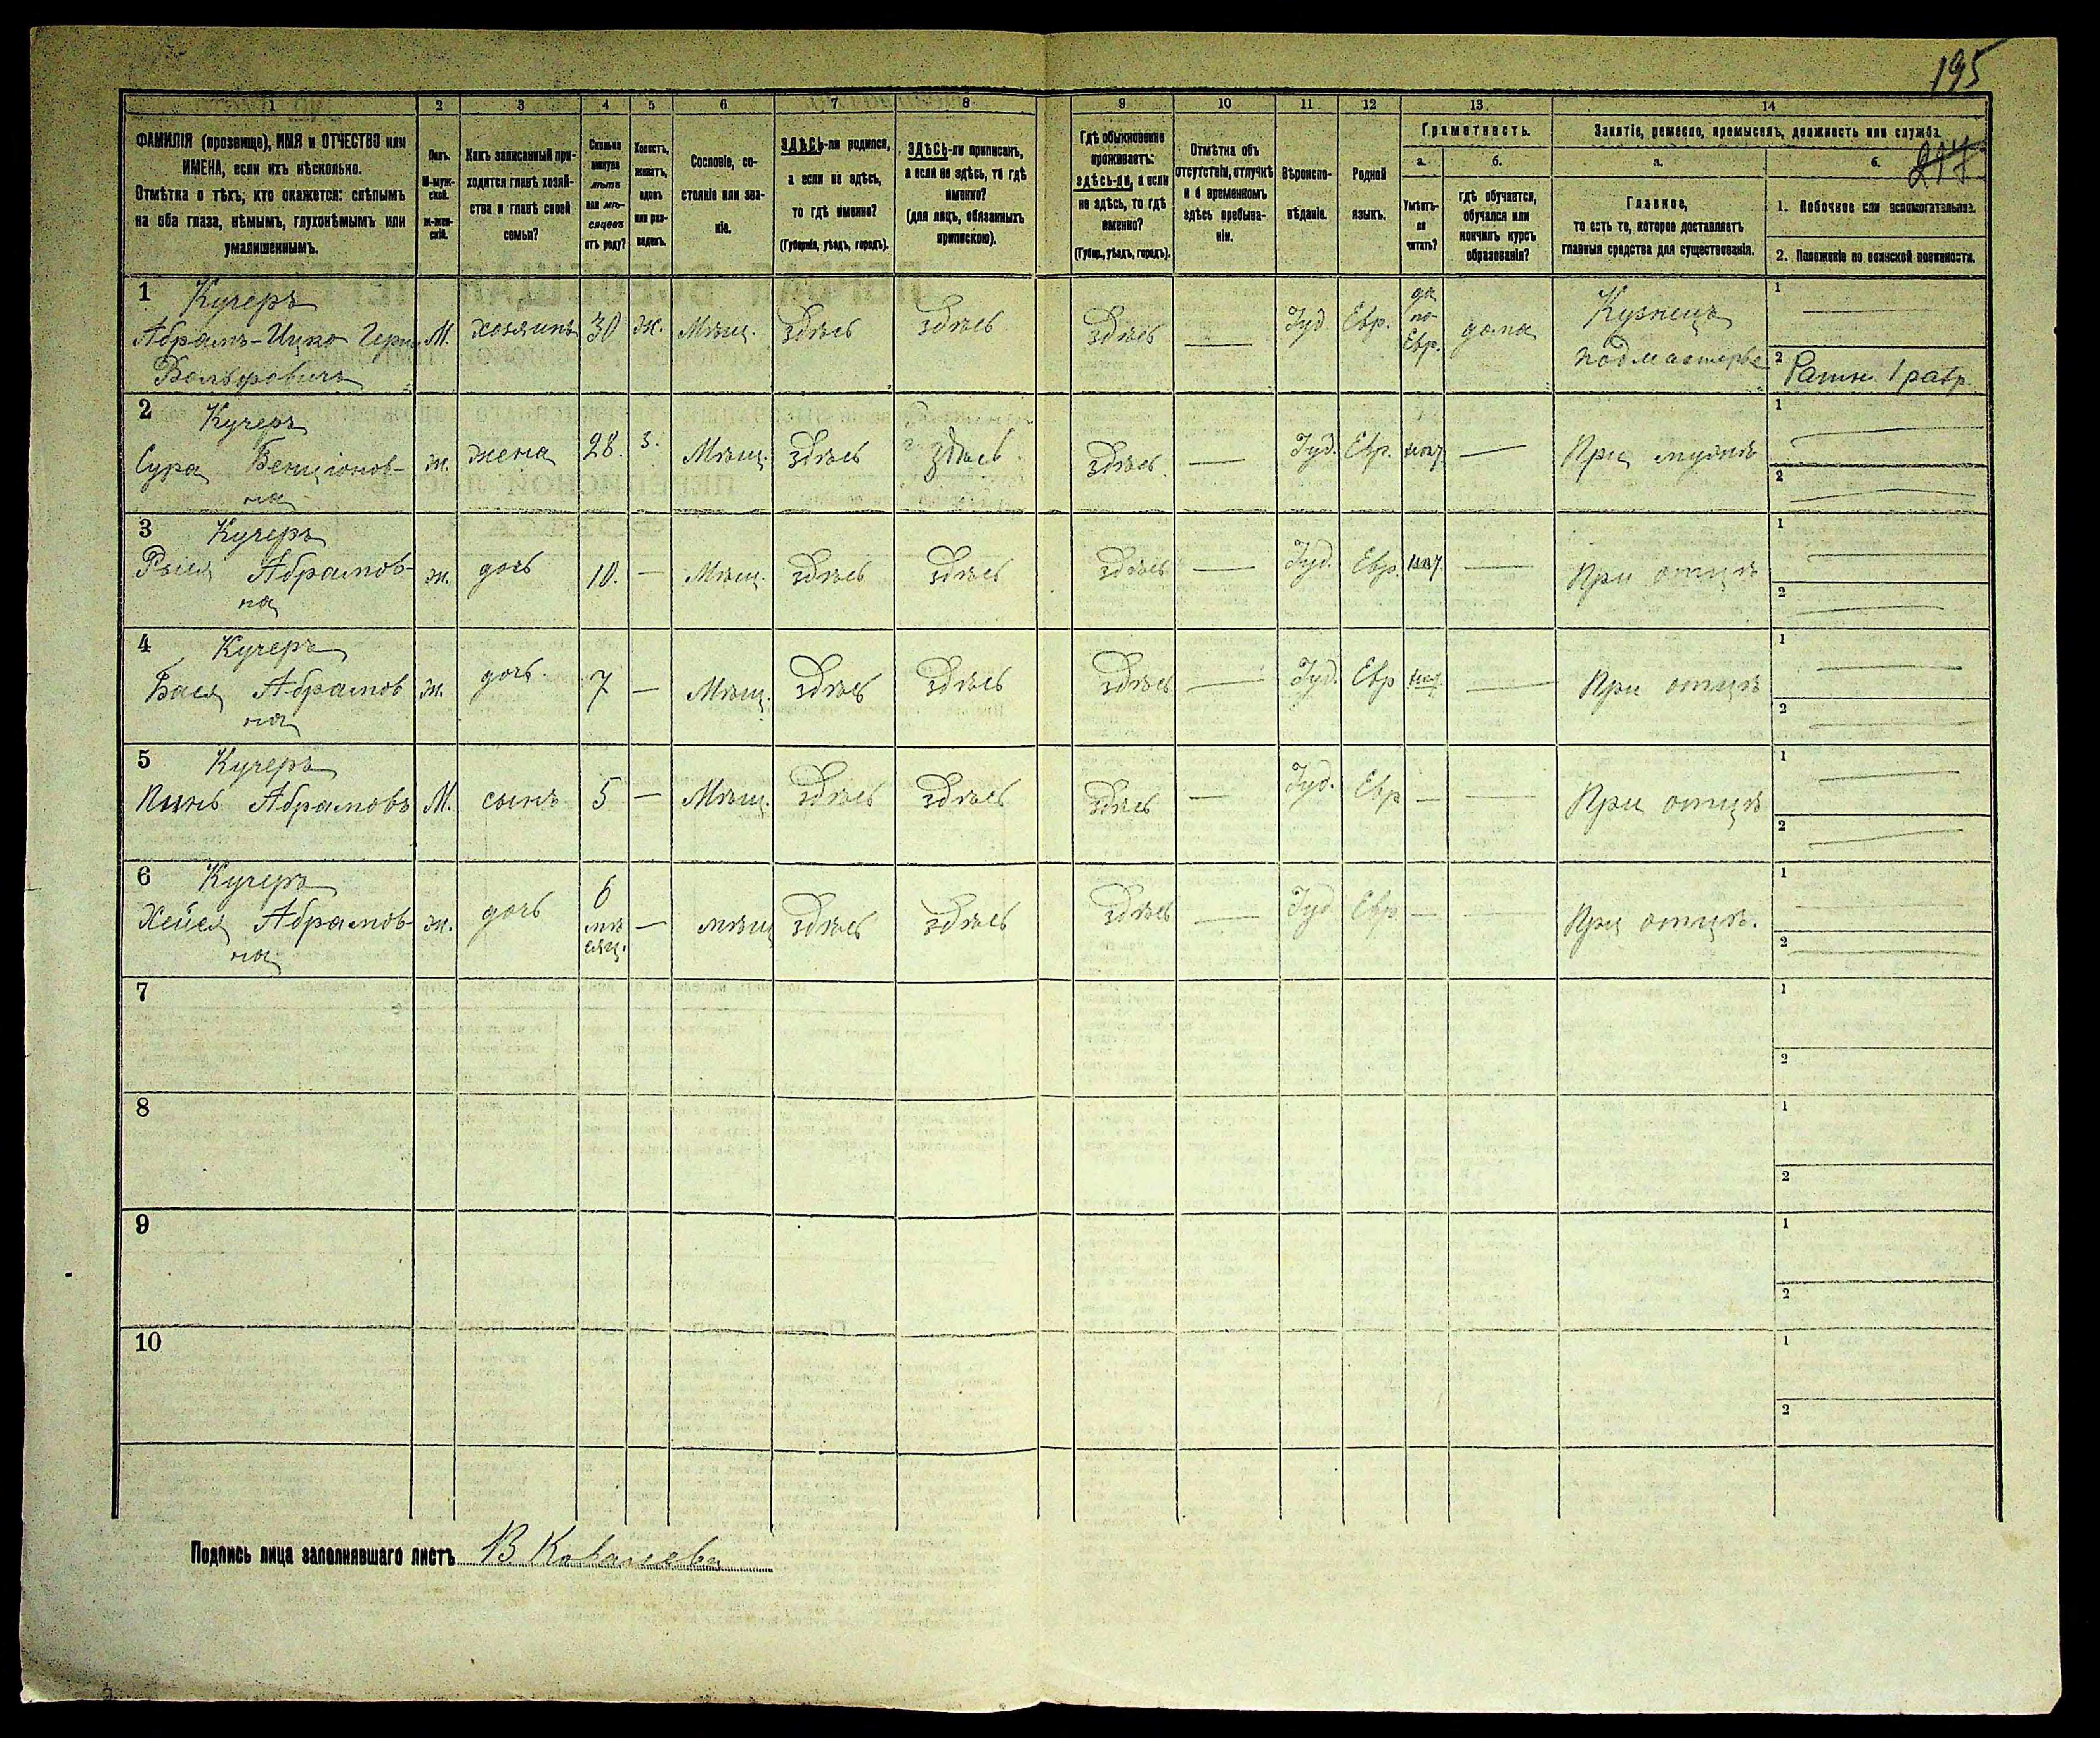 195
217
1 2 3 4 5 6 7 8 9 10 11 12 13 14
ФАМИЛІЯ (прозвище), ИМЯ и ОТЧЕСТВО или
ИМЕНА, если ихъ нѣсколько.
Отмѣтка о тѣхъ, кто окажется: слѣпымъ
на оба глаза, нѣмымъ, глухонѣмымъ или
умалишеннымъ.
Полъ.
М-муж-
ской.
ж-жен-
скій.
Какъ записанный при-
ходится главѣ хозяй-
ства и главѣ своей
семьи?
Сколько
минуло
лѣтъ
или мѣ-
сяцевъ
отъ роду?
Холостъ,
женатъ,
вдовъ
или раз-
веденъ.
Сословіе, со-
стояніе или зва-
ніе.
ЗДѢСЬ-ли родился,
а если не здѣсь,
то гдѣ именно?
(Губернія, уѣздъ, городъ).
ЗДѢСЬ-ли приписанъ,
а если не здѣсь, то гдѣ
именно?
(для лицъ, обязанныхъ
припискою).
Гдѣ обыкновенно
проживаетъ:
здѣсь-ли, а если
не здѣсь, то гдѣ
именно?
(Губер., уѣздъ, городъ).
Отмѣтка объ
отсутствіи, отлучкѣ
и о временномъ
здѣсь пребыва-
ніи.
Вѣроиспо-
вѣданіе.
Родной
языкъ.
Грамотность.
а. б.
Умѣетъ-
ли
читать?
гдѣ обучается,
обучался или
кончилъ курсъ
образованія?
Занятіе, ремесло, промыселъ, должность или служба.
а. б.
Главное,
то есть то, которое доставляетъ
главныя средства для существованія.
1. Побочное или вспомогательное.
2. Положеніе по воинской повинности.
1 Кучеръ
Абрамъ-Ицко Герш
Вольфовичъ
М. хозяинъ 30 ж. Мѣщ. здѣсь здѣсь здѣсь — Іуд. Евр.
да
по-
Евр.
дома
Кузнецъ
подмастерье
1 —
2 Ратн. 1 разр.
2 Кучеръ
Сура Бенціонов-
на
ж. жена 28. з. Мѣщ. здѣсь здѣсь. здѣсь. — Іуд. Евр. — При мужѣ
1 —
2 —
3 Кучеръ
Абрамов-
на
ж. дочь 10. — Мѣщ. здѣсь здѣсь здѣсь — Іуд. Евр. — При отцѣ
1 —
2 —
4 Кучеръ
Бася Абрамов
на
ж. дочь. 7 — Мѣщ. здѣсь здѣсь здѣсь — Іуд. Евр — При отцѣ
1 —
2 —
5 Кучеръ
Абрамовъ
М. сынъ 5 — Мѣщ. здѣсь здѣсь здѣсь — Іуд. Евр — — При отцѣ
1 —
2 —
6 Кучеръ
Хейся Абрамов-
на
ж. дочь
6
мѣ
сяц.
— мѣщ здѣсь здѣсь здѣсь — Іуд Евр — — При отцѣ.
1 —
2 —
7
1
2
8
1
2
9
1
2
10
1
2
Подпись лица заполнявшаго листъ